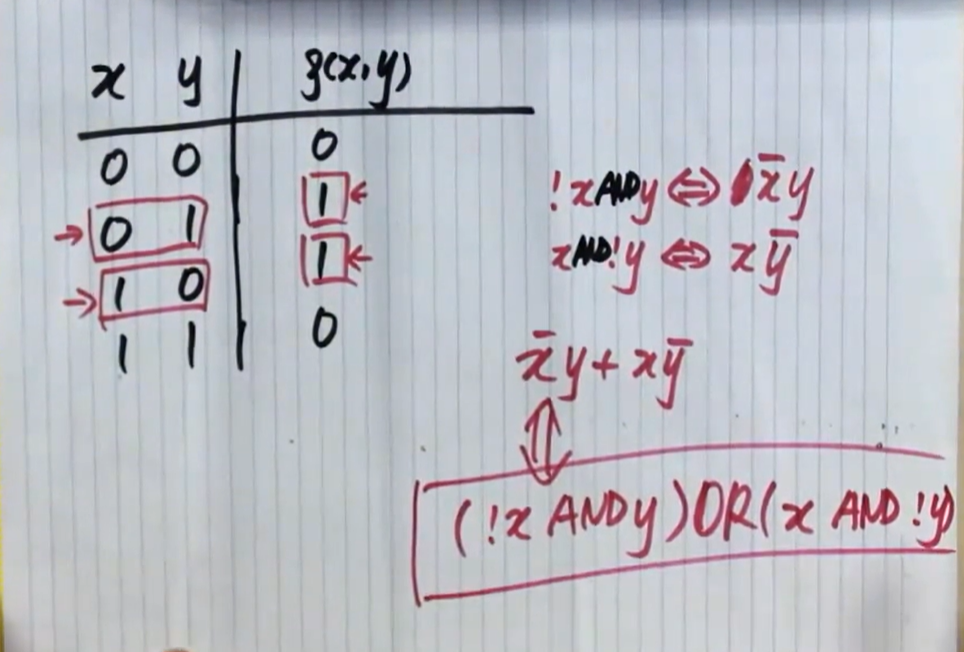 x y f(x,y)
0 0 0
→ 0 1 1 ←
→ 1 0 1 ←
1 1 0
!xANDy ⇔ x̄y
xAND!y ⇔ xȳ
x̄y + xȳ
⇕
(!x AND y) OR (x AND !y)